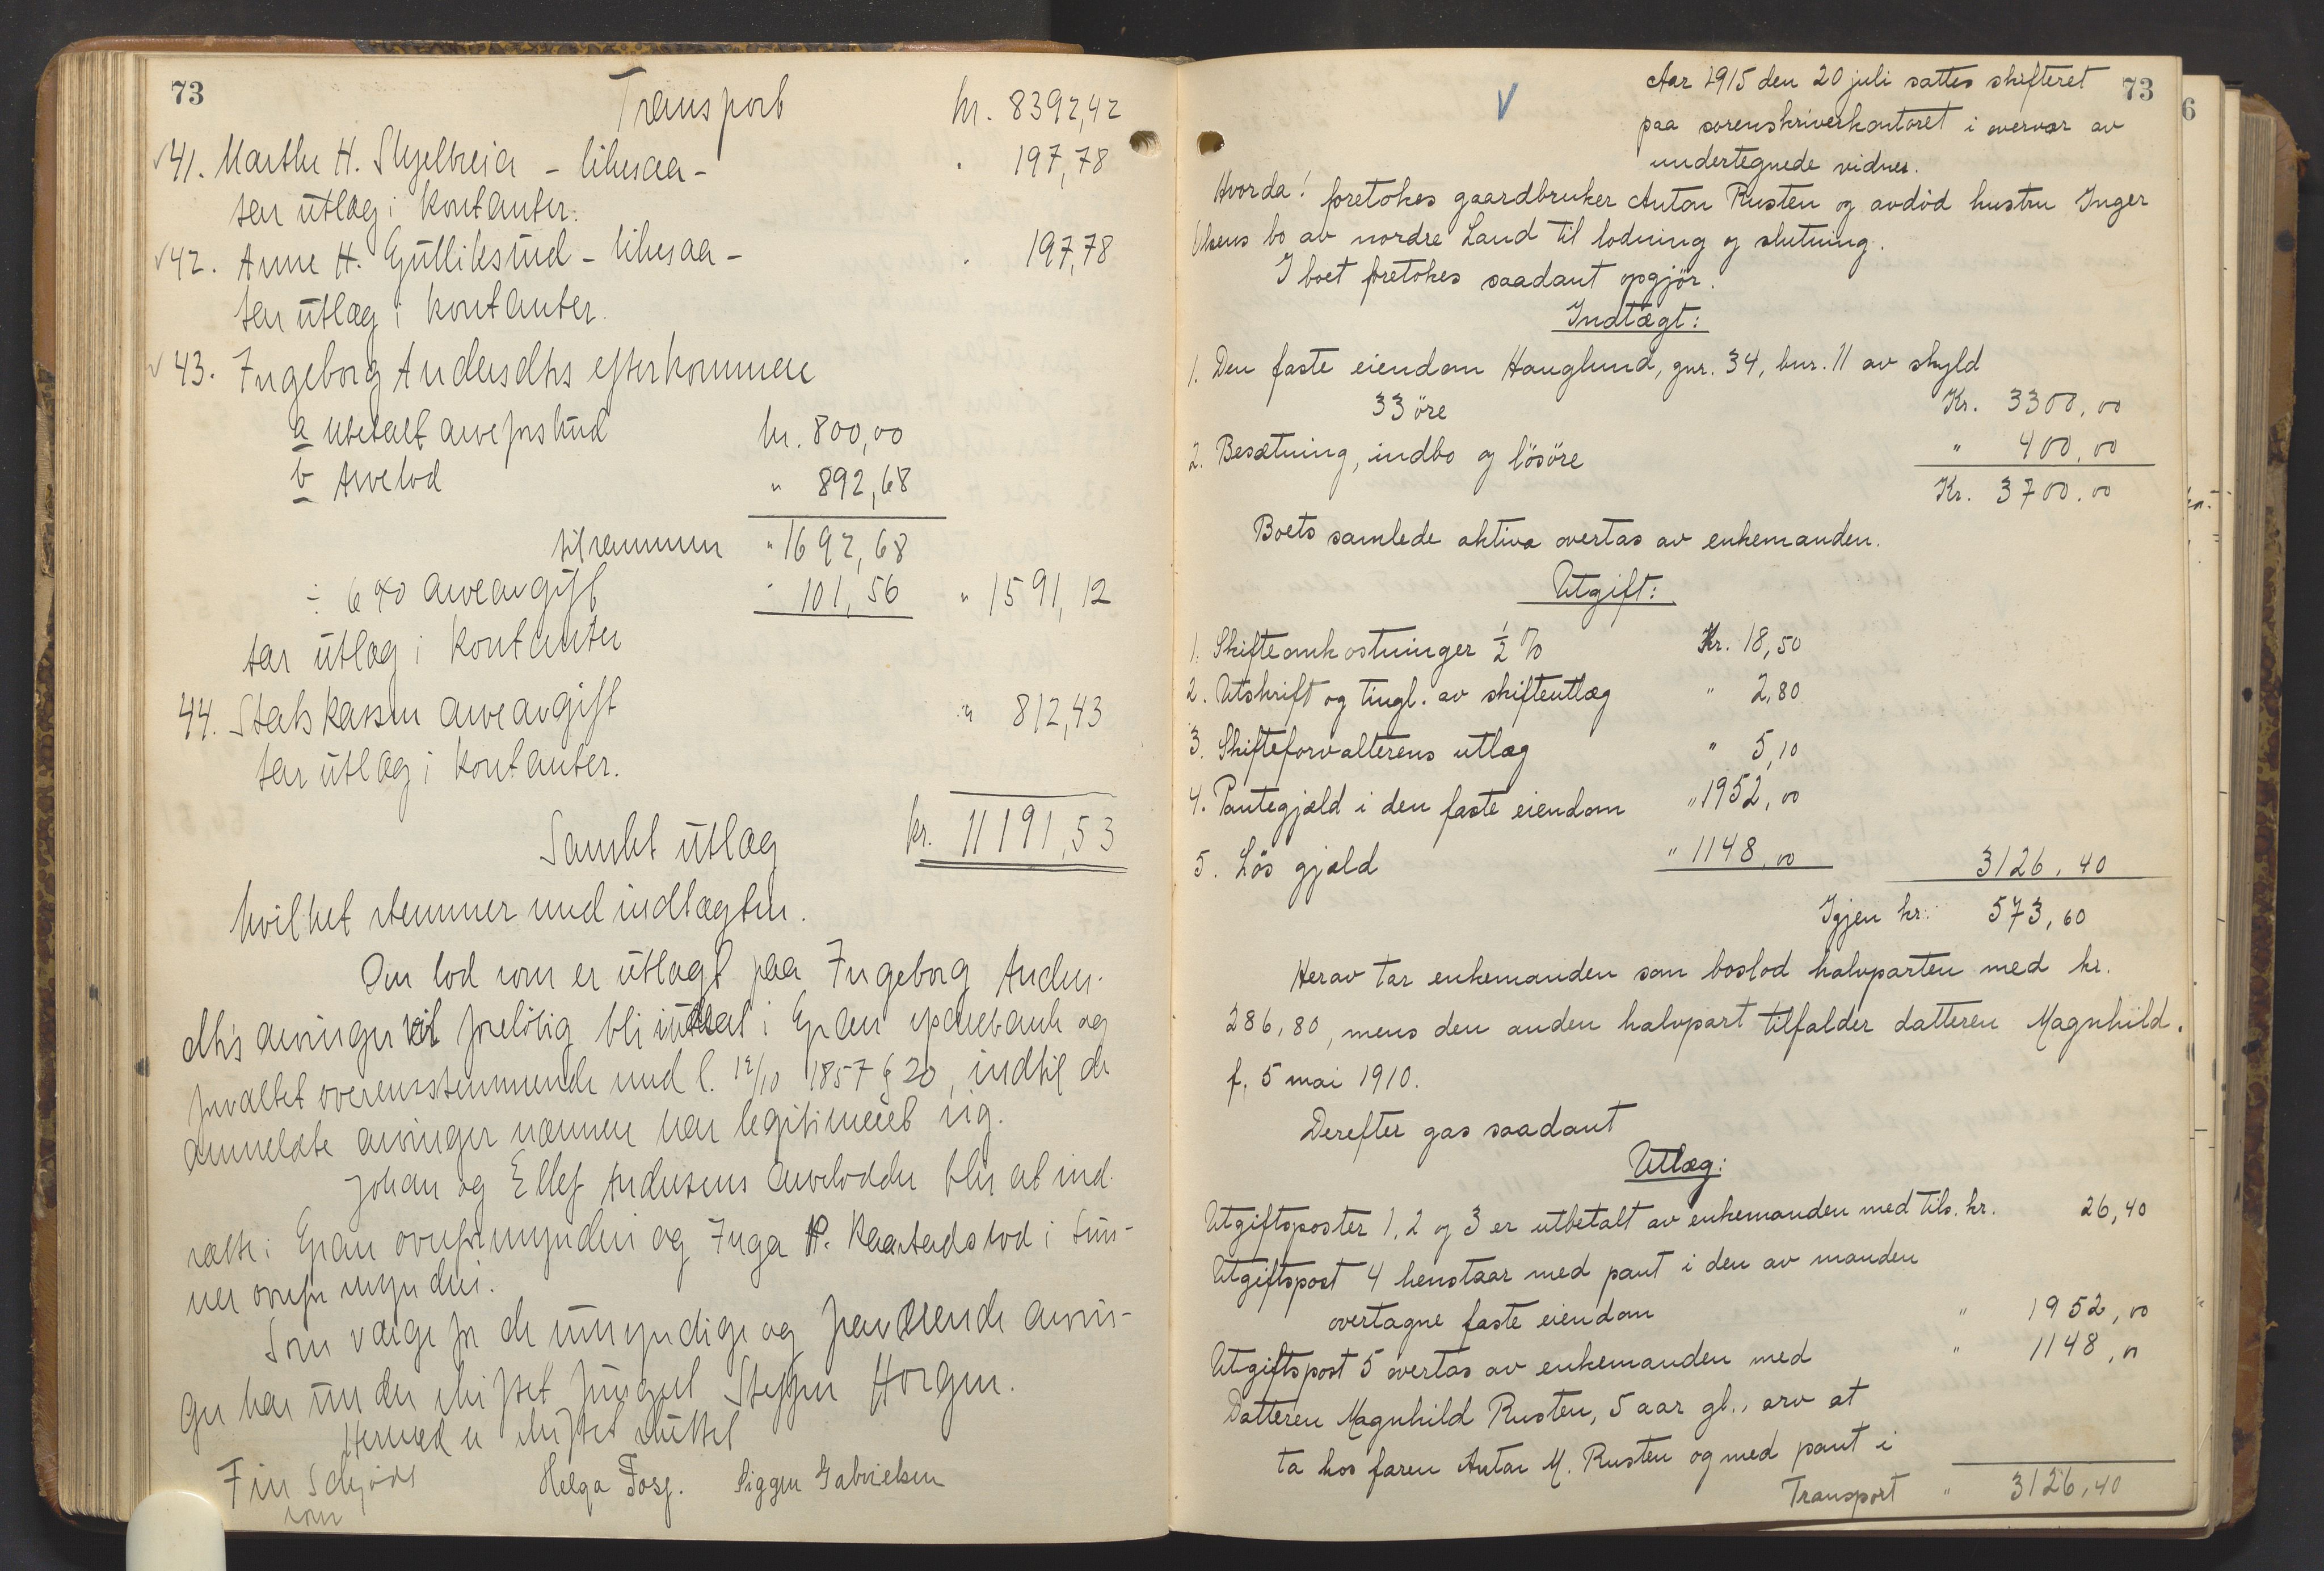 73
Transport kr. 8392,42
41. Marthe H. Skjelbreia - likesaa - " 197,78
tar utlæg i kontanter.
42. Anne H. Gulliksrud - likesaa - " 197,78
tar utlæg i kontanter.
43. Ingeborg Andersdtrs efterkommere
a ubetalt arveforskud kr. 800,00
b Arvelod " 892,68
tilsammen " 1692,68
÷ 6 % arveavgift " 101,56 " 1591,12
tar utlæg i kontanter
44. Statskassen arveavgift " 812,43
tar utlæg i kontanter.
Samlet utlæg kr. 11191,53
hvilket stemmer med indtægten.
Den lod som er utlagt paa Ingeborg Anders-
dtrs arvinger vil foreløbig bli indsat i Gran sparebank og
forvaltet overensstemmende med l. 12/10 1857 § 20, indtil de
anmeldte arvinger nærmere har legitimeret sig.
Johan og Ellef Andersens arvelodder blir at ind-
sætte i Gran overformynderi og Inga P. Kaarstads lod i Sun-
ner overformynderi.
Som værge for de umyndige og fraværende arvin-
ger har under skiftet fungert Steffen Horgen.
Hermed er skiftet sluttet
Fin Schjødt Helga Fosz. Siggen Gabrielsen
73
Aar 1915 den 20 juli sattes skifteret
paa sorenskriverkontoret i overvær av
undertegnede vidner.
Hvorda! foretokes gaardbruker Anton Rusten og avdød hustru Inger
Olsens bo av nordre Land til lodning og slutning.
I boet foretokes saadant opgjør.
Indtægt:
1. Den faste eiendom Hauglund, gnr. 34, bnr. 11 av skyld
33 øre Kr. 3300,00
2. Besætning, indbo og løsøre " 400,00
Kr. 3700.00
Boets samlede aktiva overtas av enkemanden.
Utgift:
1. Skifteomkostninger ½ % Kr. 18,50
2. Utskrift og tingl. av skifteutlæg " 2,80
3. Skifteforvalterens utlæg " 5,10
4. Pantegjæld i den faste eiendom " 1952,00
5. Løs gjæld " 1148,00 3126,40
Igjen kr. 573,60
Herav tar enkemanden som boslod halvparten med kr.
286,80, mens den anden halvpart tilfalder datteren Magnhild.
f. 5 mai 1910.
Derefter gas saadant
Utlæg:
Utgiftsposter 1, 2 og 3 er utbetalt av enkemanden med tils. kr. 26,40
Utgiftspost 4 henstaar med pant i den av manden
overtagne faste eiendom " 1952,00
Utgiftspost 5 overtas av enkemanden med " 1148,00
Datteren Magnhild Rusten, 5 aar gl., arv at
ta hos faren Anton M. Rusten og med pant i
Transport " 3126,40